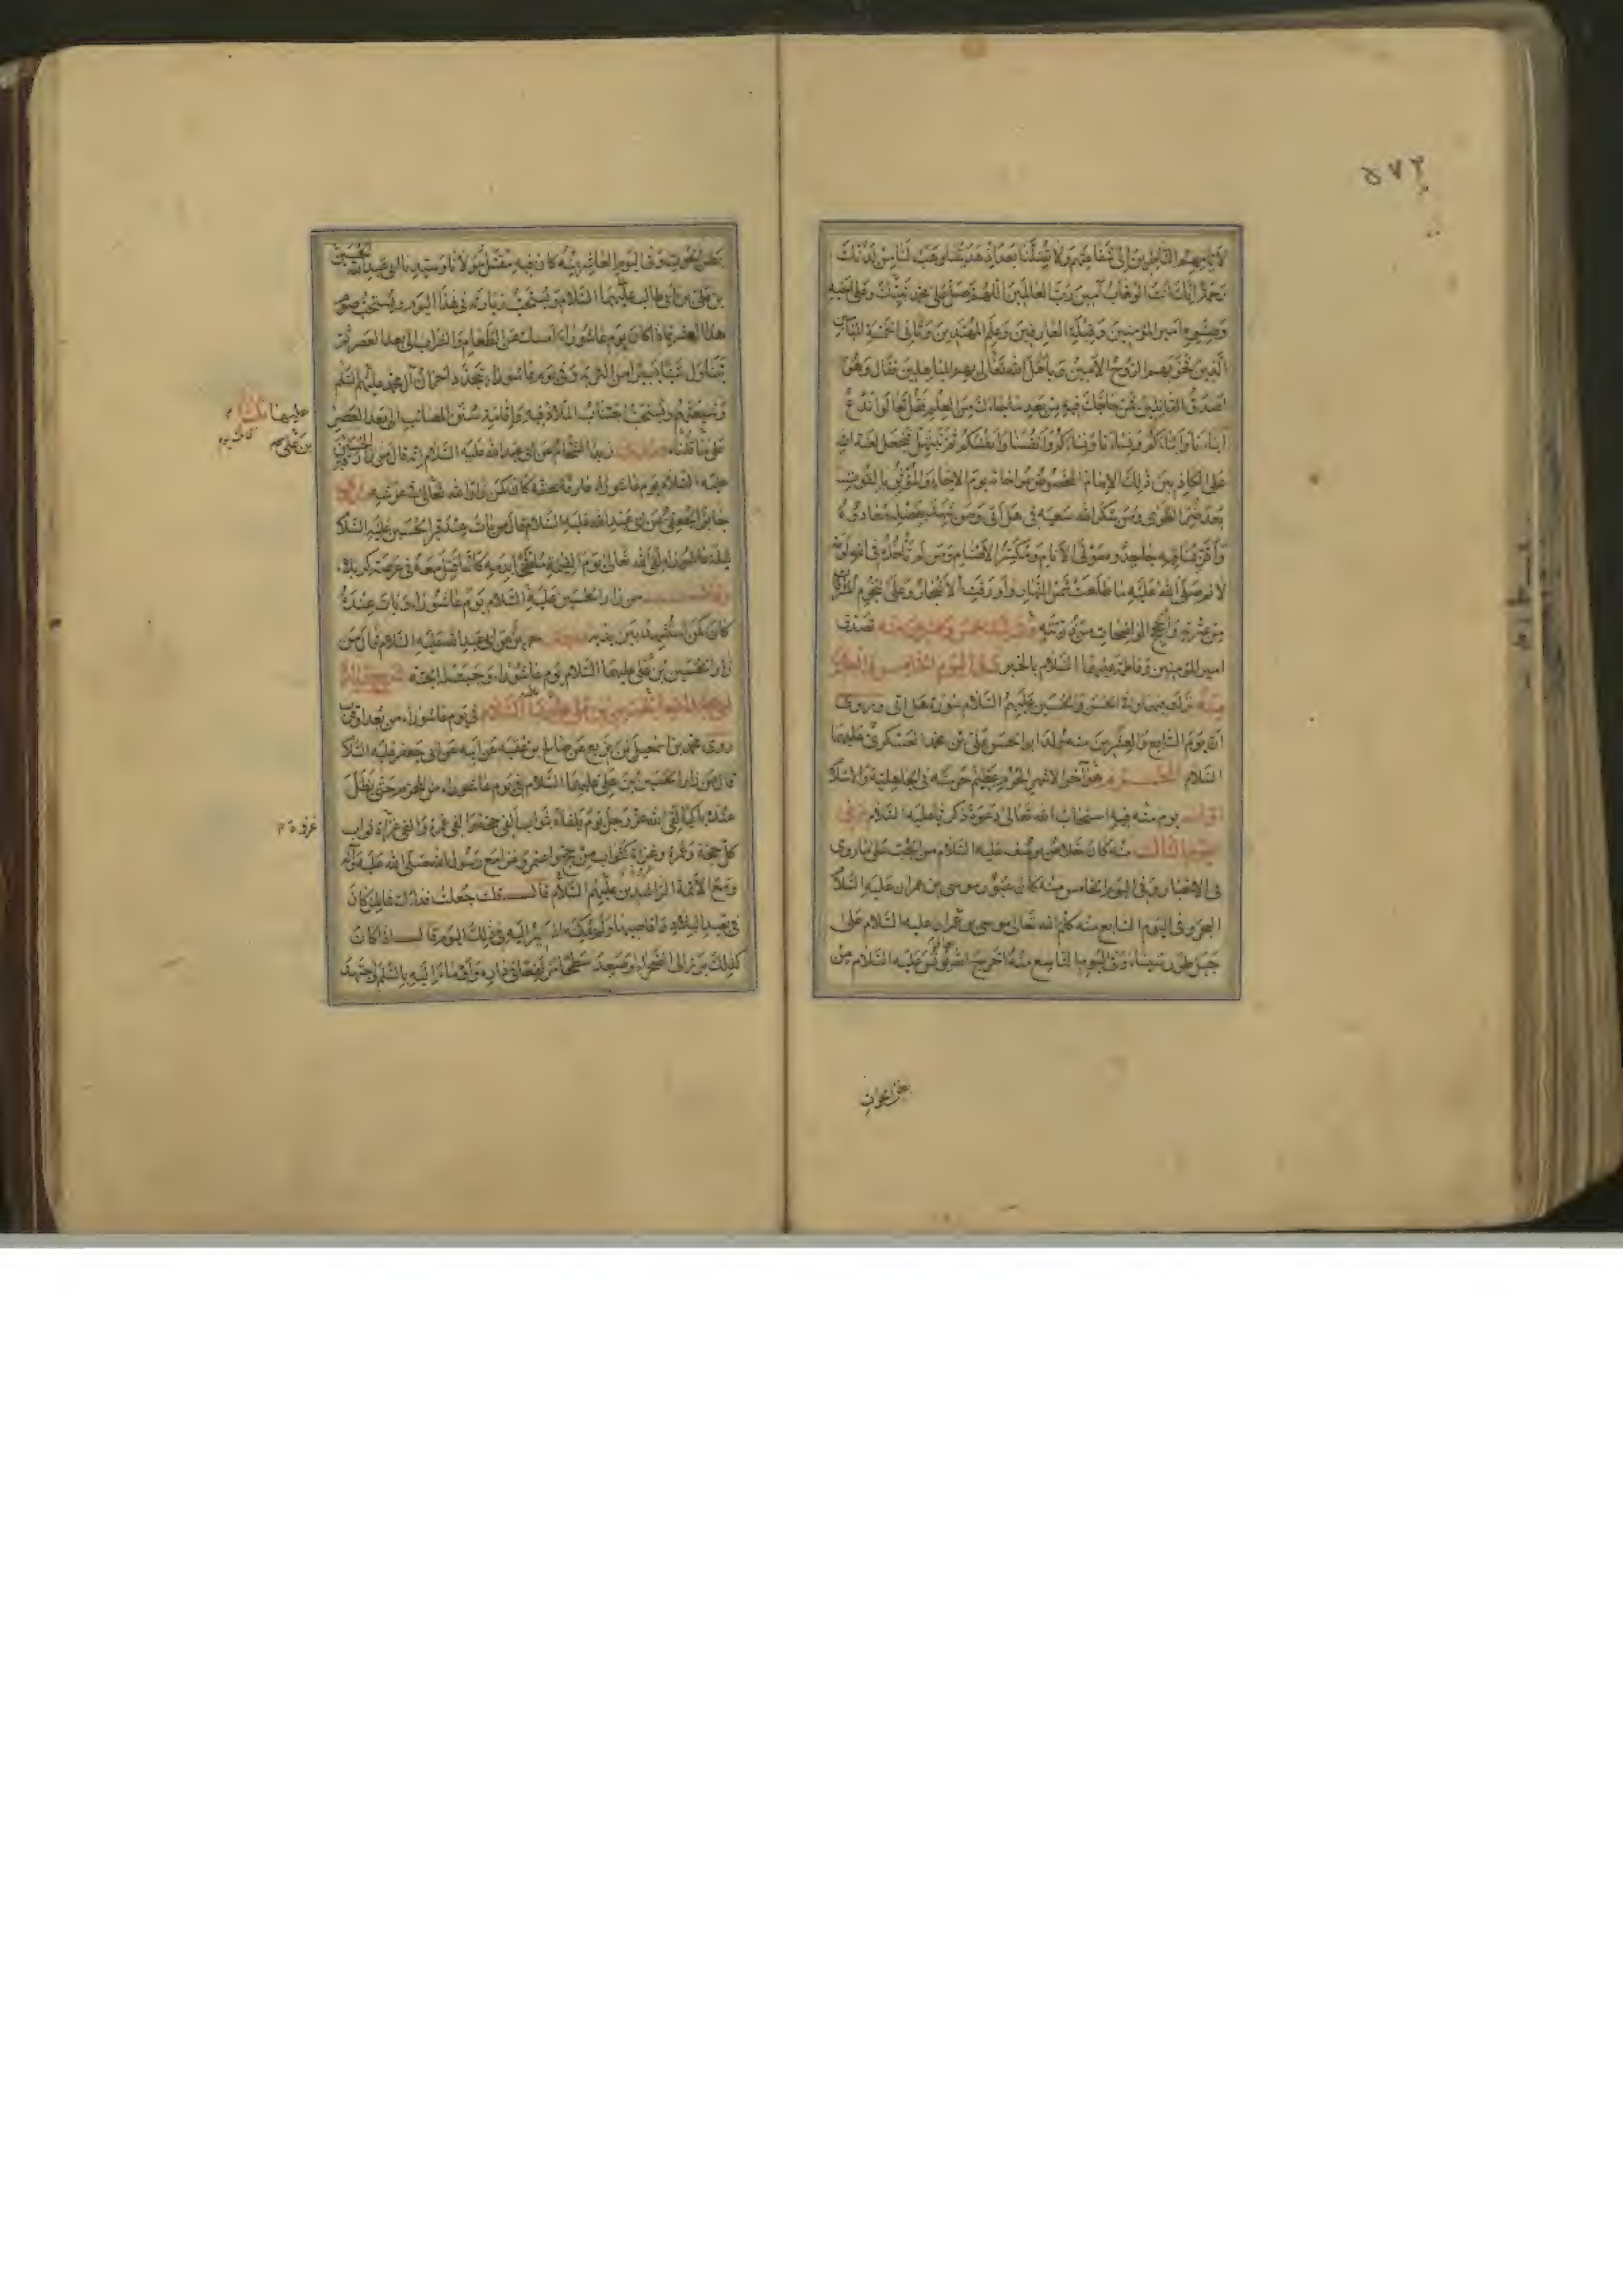 ۵۷۲
لأيامهم الناظرين إلى شفاعتهم ولا تضلنا بعد إذ هديتنا وهب لنا من لدنك
رحمة إنك أنت الوهاب آمين رب العالمين اللهم صل على محمد نبيك وعلى أخيه
وصنوه أمير المؤمنين وقبلة العارفين وعلم المهتدين وثاني الخمسة الميامين
الذين فخر بهم الروح الأمين وباهل الله تعالى بهم المباهلين فقال وهو
أصدق القائلين فمن حاجك فيه من بعد ما جاءك من العلم فقل تعالوا ندع
أبناءنا وأبناءكم ونساءنا ونساءكم وأنفسنا وأنفسكم ثم نبتهل فنجعل لعنة الله
على الكاذبين ذلك الإمام المخصوص بمواخاته يوم الإخاء والمؤثر بالقوت
بعد ضر الطوى ومن شكر الله سعيه في هل أتى ومن شهد بفضله معادوه
وأقر بمناقبه جاحدوه مولى الأنام ومكسر الأصنام ومن لم تأخذه في الله لومة
لائم صلى الله عليه ما طلعت شمس النهار وأورقت الأشجار وعلى النجوم المشرقات
من عترته والحجج الواضحات من ذريته وفي ليلة خمس وعشرين منه تصدق
أمير المؤمنين وفاطمة عليهما السلام بالخبر وفي اليوم الخامس والعشرين
منه نزلت فيهما وفي الحسن والحسين عليهم السلام سورة هل أتى وروي
أن يوم السابع والعشرين منه ولد أبو الحسن علي بن محمد العسكري عليهما
السلام المحرم هو آخر الأشهر الحرم عظيم حرمته في الجاهلية والإسلام
أول يوم منه فيه استجاب الله تعالى دعوة زكريا عليه السلام وفي
اليوم الثالث منه كان خلاص يوسف عليه السلام من الجب على ما روي
في الأخبار وفي اليوم الخامس منه كان عبور موسى بن عمران عليه السلام
البحر وفي اليوم السابع منه كلم الله تعالى موسى بن عمران عليه السلام على
جبل طور سيناء وفي اليوم التاسع منه أخرج الله يونس عليه السلام من
بطن الحوت
بطن الحوت وفي اليوم العاشر منه كان فيه مقتل مولانا وسيدنا أبي عبد الله الحسين
بن علي بن أبي طالب عليهما السلام ويستحب زيارته في هذا اليوم ويستحب صوم
هذا العشر فإذا كان يوم عاشوراء أمسك عن الطعام والشراب إلى بعد العصر ثم
يتناول شيئا يسيرا من التربة وفي يوم عاشوراء تجدد أحزان آل محمد عليهم السلم
وشيعتهم ويستحب اجتناب الملاذ فيه وإقامة سنن المصائب إلى بعد العصر
على ما قلناه زيد الشحام عن أبي عبد الله عليه السلام أنه قال من زار الحسين
عليه السلام يوم عاشوراء عارفا بحقه كان كمن زار الله تعالى في عرشه
جابر الجعفي عن أبي عبد الله عليه السلام قال من بات عند قبر الحسين عليه السلام
ليلة عاشوراء لقي الله تعالى يوم القيمة ملطخا بدمه كأنما قتل معه في عرصة كربلاء
وقال من زار الحسين عليه السلام يوم عاشوراء وبات عنده
كان كمن استشهد بين يديه حريز عن أبي عبد الله عليه السلام قال من
زار الحسين بن علي عليهما السلام يوم عاشوراء وجبت له الجنة شرح زيارة
أبي عبد الله الحسين بن علي عليهما السلام في يوم عاشوراء من بعد أو قرب
روى محمد بن اسمعيل بن بزيع عن صالح بن عقبة عن أبيه عن أبي جعفر عليه السلام
قال من زار الحسين بن علي عليهما السلام في يوم عاشوراء من المحرم حتى يظل
عنده باكيا لقي الله عز وجل يوم يلقاه بثواب ألفي حجة وألفي عمرة وألفي غزوة ثواب
كل حجة وعمرة وغزوة كثواب من حج واعتمر وغزا مع رسول الله صلى الله عليه وآله
ومع الأئمة الراشدين عليهم السلام قال قلت جعلت فداك فما لمن كان
في بعيد البلاد وأقاصيها ولم يمكنه المسير إليه في ذلك اليوم قال إذا كان
كذلك برز إلى الصحراء أو صعد سطحا مرتفعا في داره وأومأ إليه بالسلم واجتهد
عليهما
بن علي
غزوة